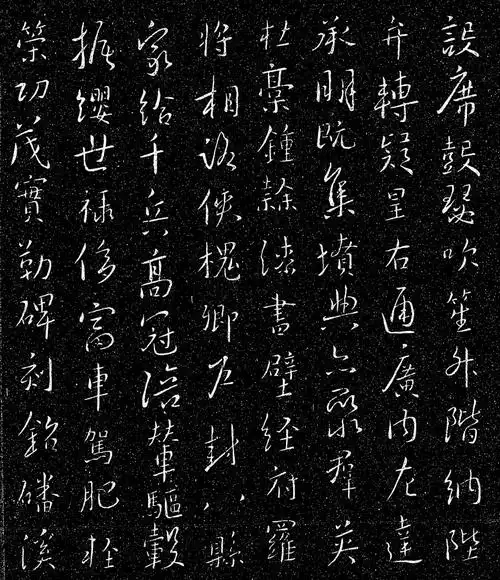 設席鼓瑟吹笙升階納陛
弁轉疑星右通廣內左達
承明既集墳典亦聚羣英
杜稾鍾隸漆書壁經府羅
將相路俠槐卿戶封八縣
家給千兵高冠陪輦驅轂
振纓世祿侈富車駕肥輕
策功茂實勒碑刻銘磻溪